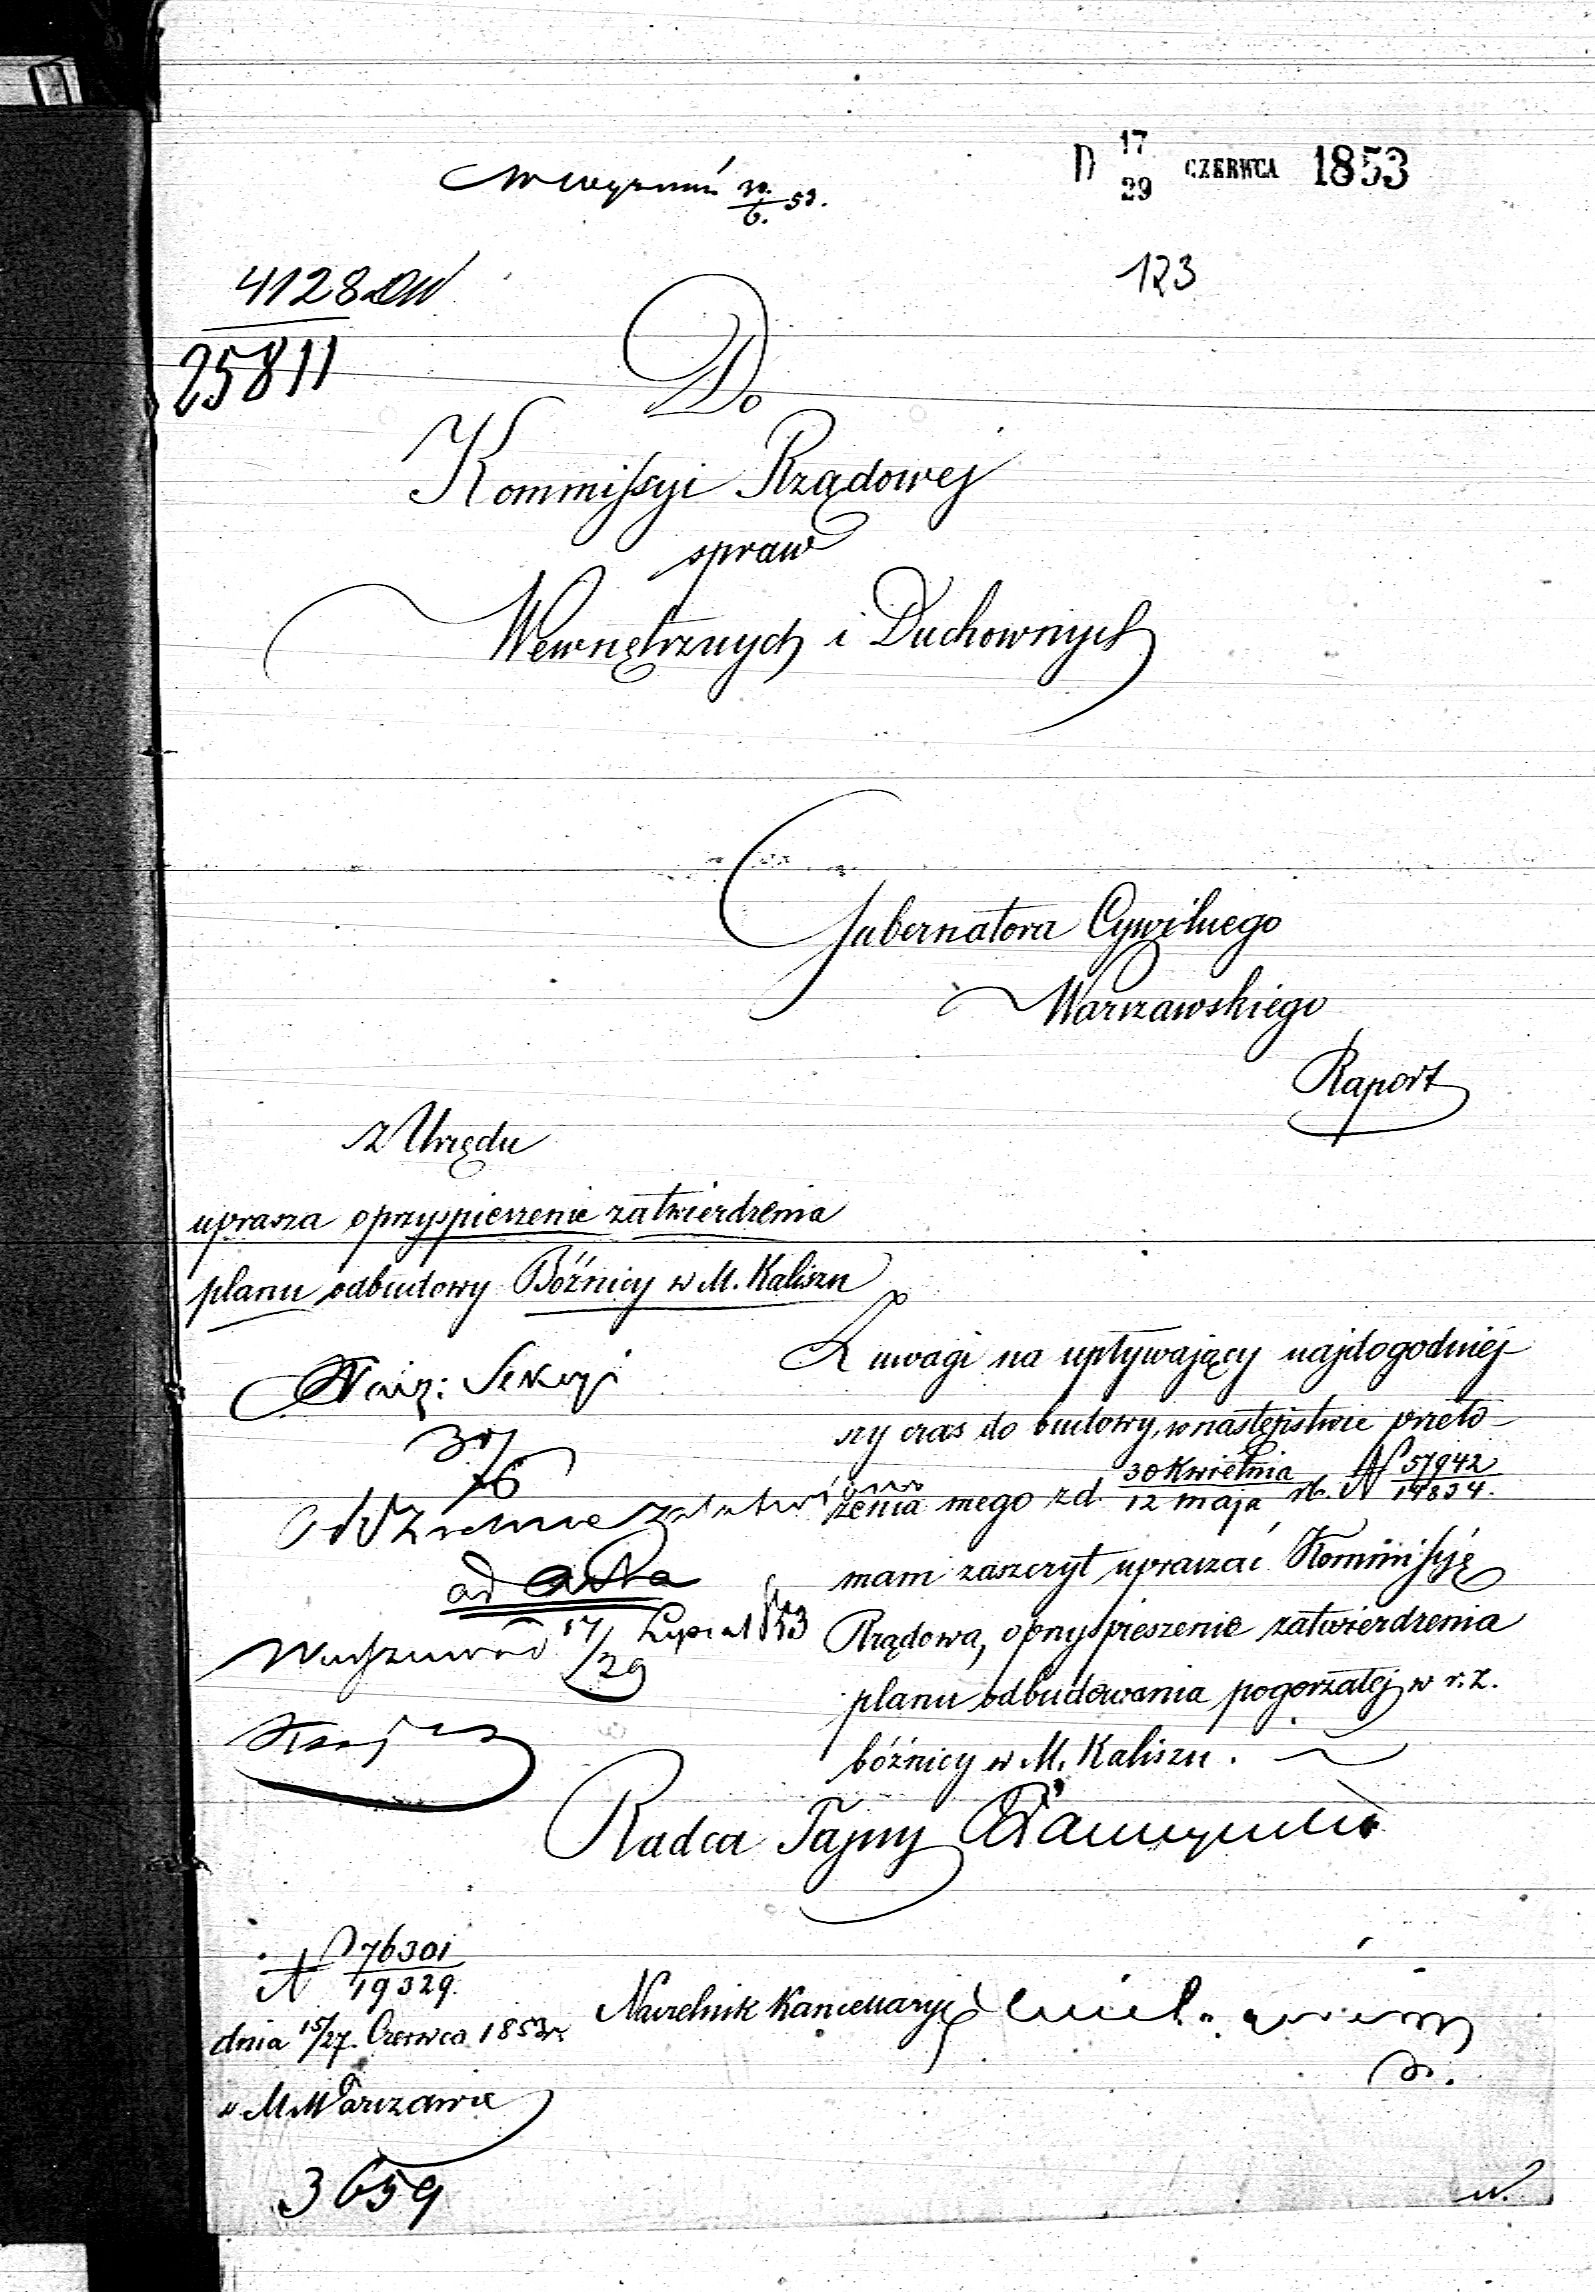 D 17/29 CZERWCA 1853
30/6. 53.
123
4128
25811
Do
Kommissyi Rządowej
spraw
Wewnętrznych i Duchownych
Gubernatora Cywilnego
Warszawskiego
Raport
z Urzędu
uprasza o przyspieszenie zatwierdzenia
planu odbudowy Bóźnicy w M. Kaliszu
Z uwagi na upływający najdogodniej-
szy czas do budowy, w następstwie przeło-
żenia mego z d. 30 Kwietnia/12 maja rb. N 57942/14834.
mam zaszczyt upraszać Kommissyę
Rządową, o przyspieszenie zatwierdzenia
planu odbudowania pogorzałej w r. z.
bóźnicy w M. Kaliszu.
Sekcyi
30/6
Oddzielnie
ad acta
17/29 1853
Radca Tajny
N 76301/19329.
dnia 15/27. Czerwca 1853 r.
w M. Warszawie
Naczelnik Kancellaryi
3659